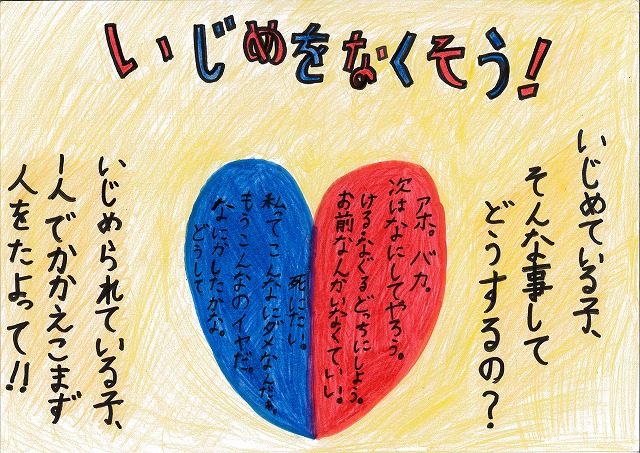 いじめをなくそう!
いじめている子、
そんな事して
どうするの？
アホ。バカ。
次はなにしてやろう。
けるなぐるどっちにしよう。
お前なんかいなくていい!
死にたい。
私ってこんなにダメなんだね。
もうこんなのイヤだ。
なにかしたかな。
どうして
いじめられている子、
1人でかかえこまず
人をたよって!!